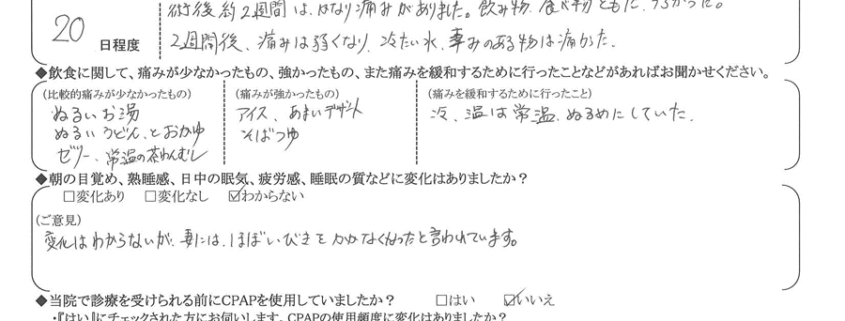 術後約2週間は、かなり痛みがありました。飲み物、食べ物ともに、つらかった。
20 日程度
2週間後、痛みは弱くなり、冷たい水、辛みのある物は痛かった。
◆飲食に関して、痛みが少なかったもの、強かったもの、また痛みを緩和するために行ったことなどがあればお聞かせください。
(比較的痛みが少なかったもの) (痛みが強かったもの) (痛みを緩和するために行ったこと)
ぬるいお湯 アイス、あまいデザート 冷、温は常温、ぬるめにしていた。
ぬるいうどん、とおかゆ そばつゆ
ゼリー、常温の茶わんむし
◆朝の目覚め、熟睡感、日中の眠気、疲労感、睡眠の質などに変化はありましたか？
□変化あり □変化なし ☑わからない
(ご意見)
変化はわからないが、妻には、ほぼいびきをかかなくなったと言われています。
◆当院で診療を受けられる前にCPAPを使用していましたか？ □はい ☑いいえ
・『はい』にチェックされた方にお伺いします。CPAPの使用頻度に変化はありましたか？